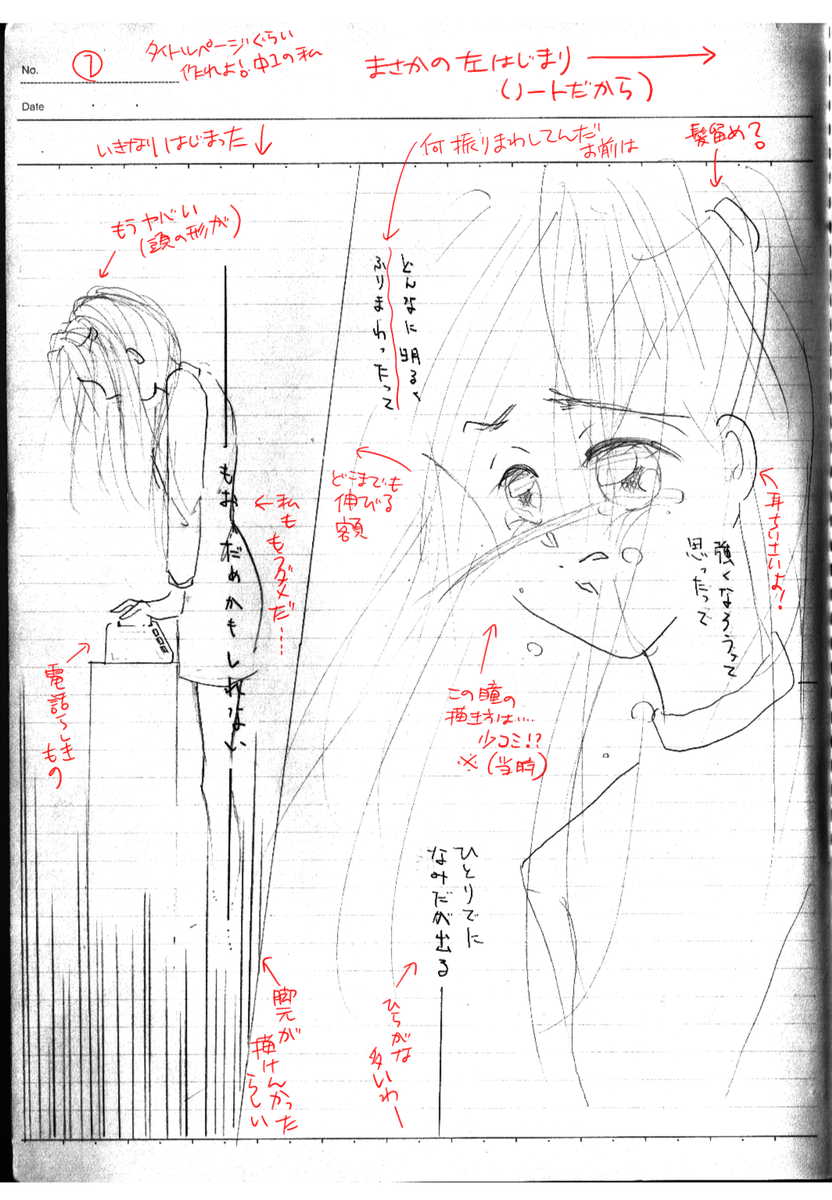 No.
①
Date
タイトルページぐらい
作れよ!中1の私
まさかの左はじまり
(ノートだから)
いきなりはじまった
何振りまわしてんだ
お前は
髪留め?
もうヤバい
(頭の形が)
どんなに明るく
ふりまわったって
もお だめかもしれない
どこまでも
伸びる
額
私も
もうダメだ……
耳ちいさいよ!
強くなろうって
思ったって
電話らしき
もの
この瞳の
描き方は….
少コミ!?
※(当時)
ひとりでに
なみだが出る
脚元が
描けんかった
らしい
ひらがな
多いわー